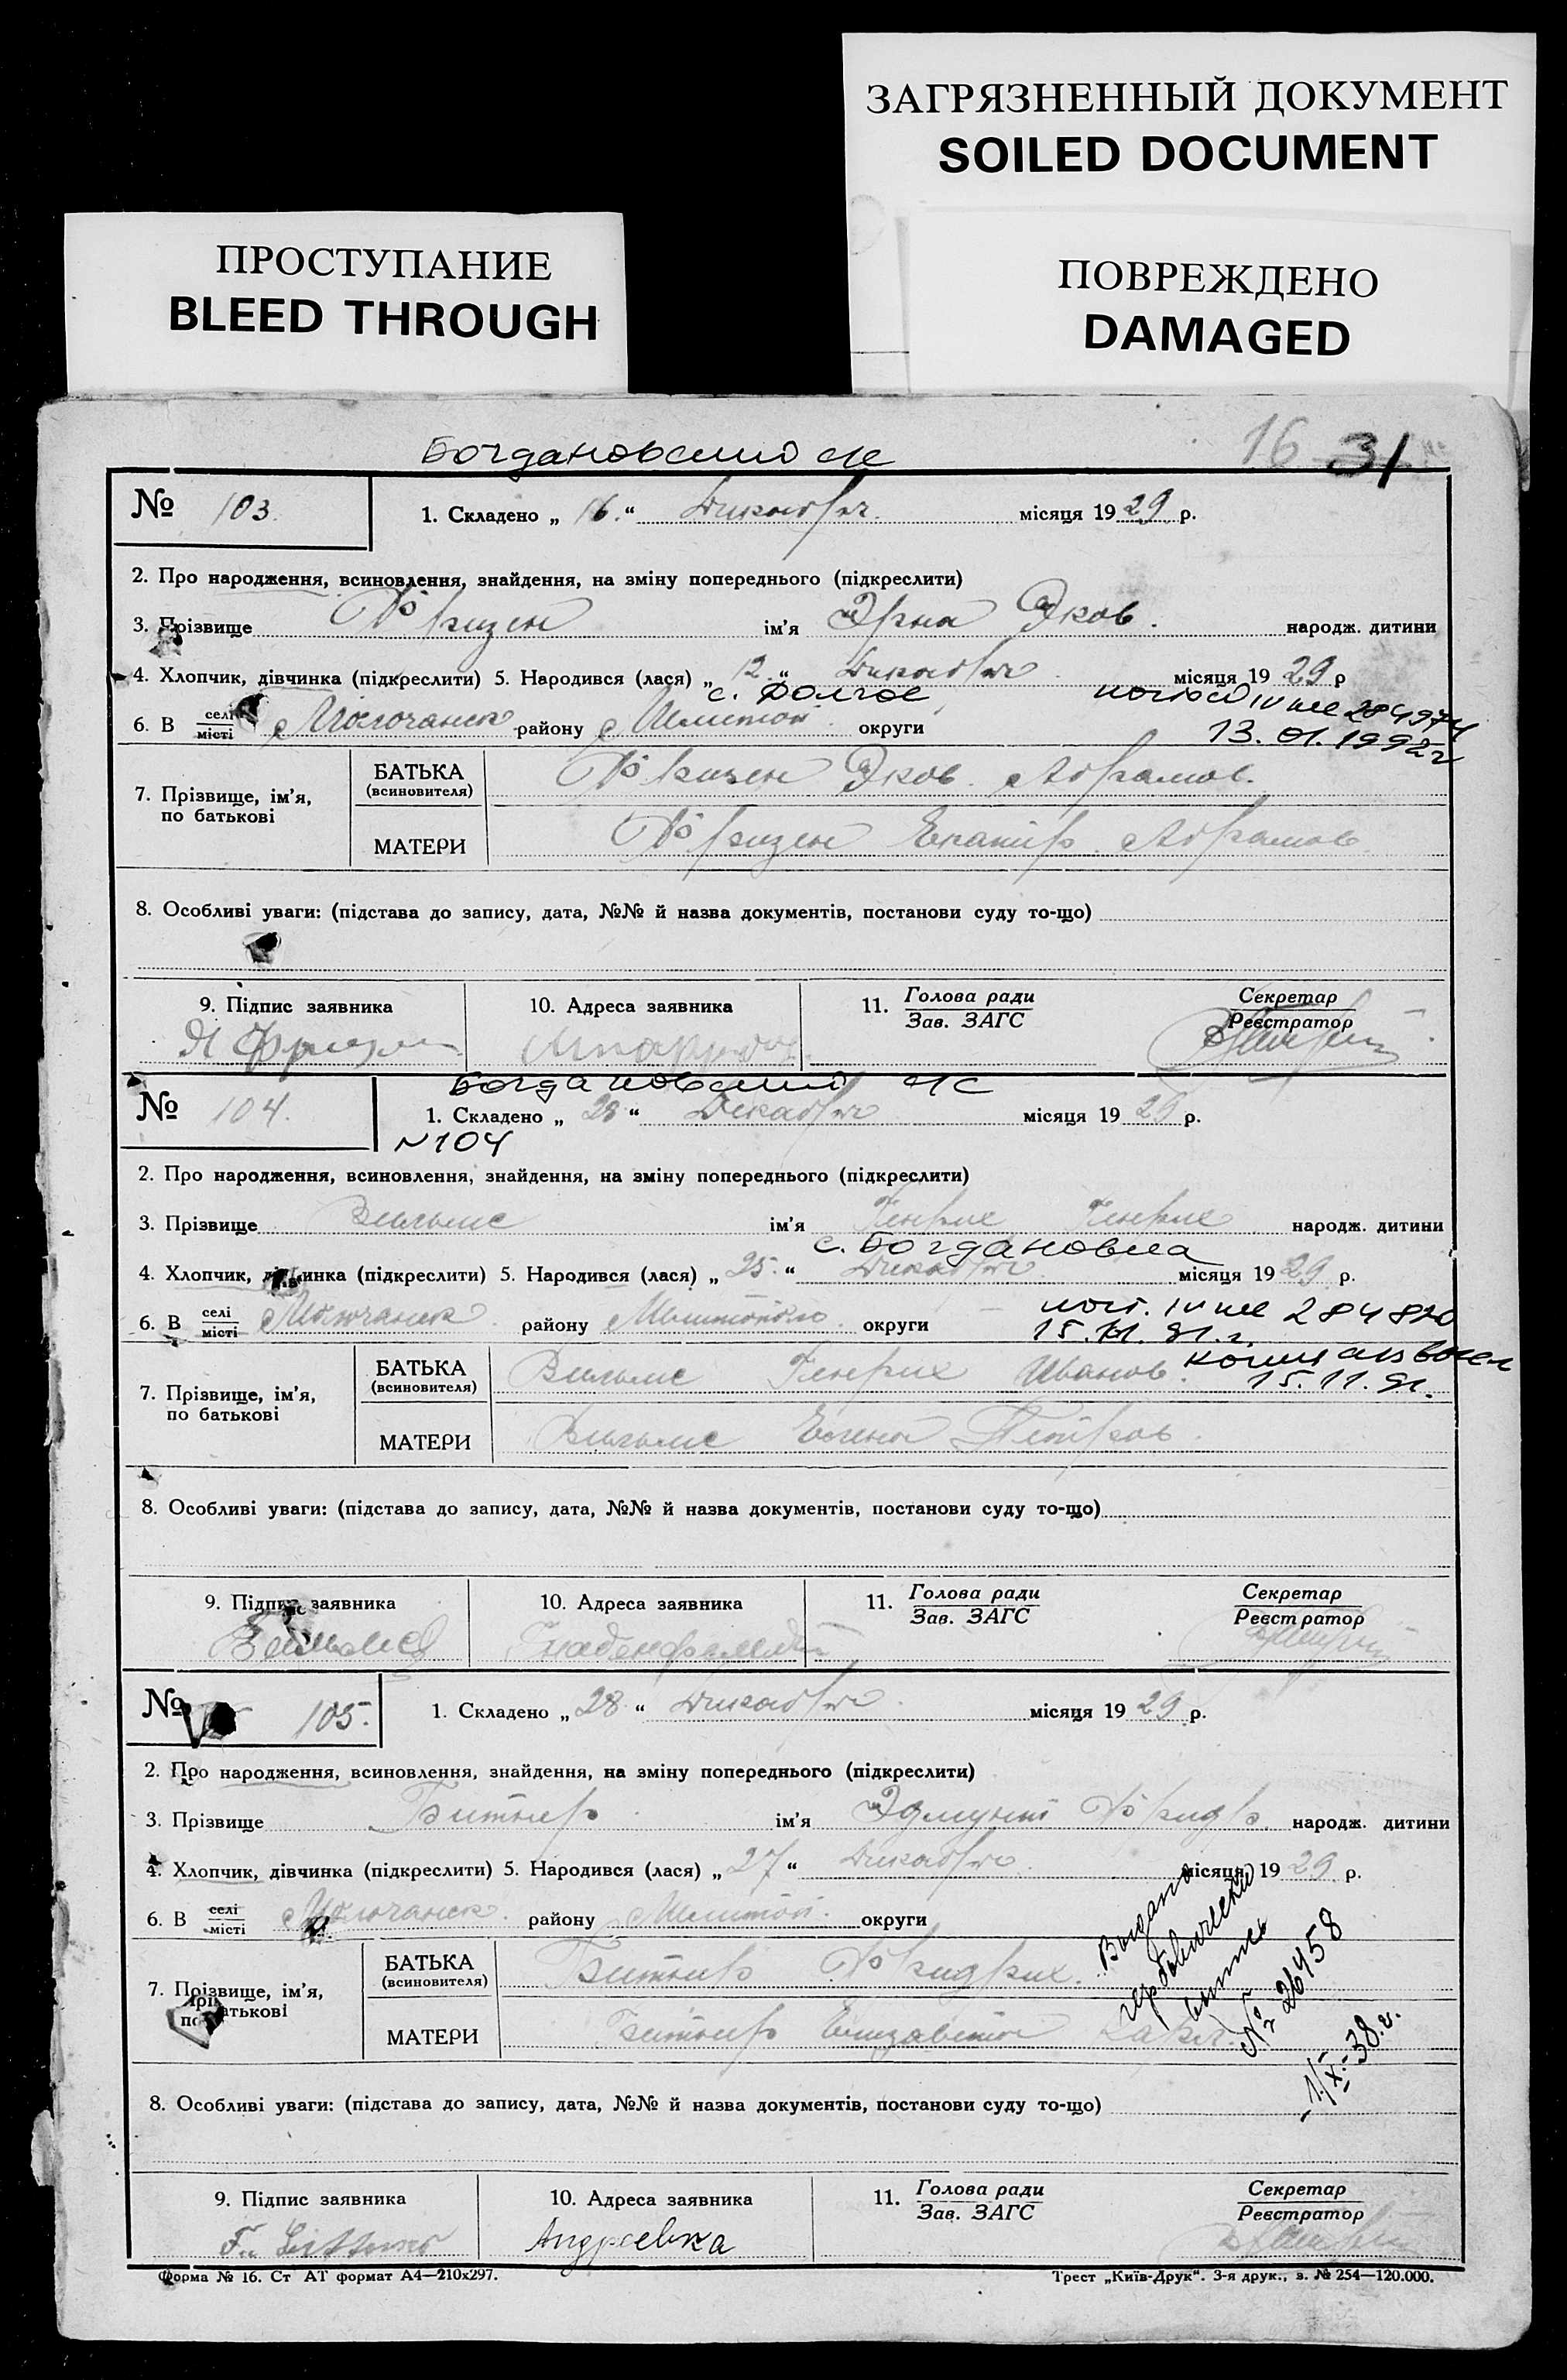 ЗАГРЯЗНЕННЫЙ ДОКУМЕНТ
SOILED DOCUMENT
ПРОСТУПАНИЕ
BLEED THROUGH
ПОВРЕЖДЕНО
DAMAGED
16 31
№ 103. 1. Складено „ 16. “ Декабря місяця 19 29 р.
2. Про народження, всиновлення, знайдення, на зміну попереднього (підкреслити)
3. Прізвище Фризен ім'я Эрна Яков. народж. дитини
4. Хлопчик, дівчинка (підкреслити) 5. Народився (лася) „ 12. “ Декабря місяця 19 29 р
с. Долгое,
6. В селі місті Молочанск району Мелитоп. округи
284974
13. 01. 1992 г
7. Прізвище, ім'я, по батькові
БАТЬКА (всиновителя) Фризен Яков Абрамов.
МАТЕРИ Фризен Екатир. Абрамов.
8. Особливі уваги: (підстава до запису, дата, №№ й назва документів, постанови суду то-що)
9. Підпис заявника 10. Адреса заявника 11. Голова ради Зав. ЗАГС Секретар Реєстратор
Я Фризен
Богдановский с/с
№ 104. 1. Складено „ 28 “ Декабря місяця 19 29 р.
N 104
2. Про народження, всиновлення, знайдення, на зміну попереднього (підкреслити)
3. Прізвище Вильмс ім'я Генрих Генрих народж. дитини
с. Богдановка
4. Хлопчик, дівчинка (підкреслити) 5. Народився (лася) „ 25. “ Декабря місяця 19 29 р.
6. В селі місті Молочанск району Мелитополь округи
284820
15. 11. 91. г.
7. Прізвище, ім'я, по батькові
БАТЬКА (всиновителя) Вильмс Генрих Иванов.
15. 11. 91.
МАТЕРИ Вильмс Елена Петров.
8. Особливі уваги: (підстава до запису, дата, №№ й назва документів, постанови суду то-що)
9. Підпис заявника 10. Адреса заявника 11. Голова ради Зав. ЗАГС Секретар Реєстратор
Вильмс
№ 105. 1. Складено „ 28 “ Декабря місяця 19 29 р.
2. Про народження, всиновлення, знайдення, на зміну попереднього (підкреслити)
3. Прізвище Битнер ім'я Эдмунт Фридр. народж. дитини
4. Хлопчик, дівчинка (підкреслити) 5. Народився (лася) „ 27 “ Декабря місяця 19 29 р.
6. В селі місті Молочанск району Мелитоп. округи
7. Прізвище, ім'я, по батькові
БАТЬКА (всиновителя) Битнер Фридрих.
МАТЕРИ Битнер Елизавета Карл.
Выдано
№ 26458
1/X-38.г.
8. Особливі уваги: (підстава до запису, дата, №№ й назва документів, постанови суду то-що)
9. Підпис заявника 10. Адреса заявника 11. Голова ради Зав. ЗАГС Секретар Реєстратор
Андреевка
Форма № 16. Ст АТ формат А4—210х297.
Трест „Київ-Друк“. 3-я друк., з. № 254—120.000.